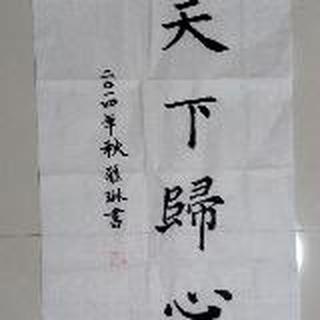 天下歸心
二〇一四年秋 琳書